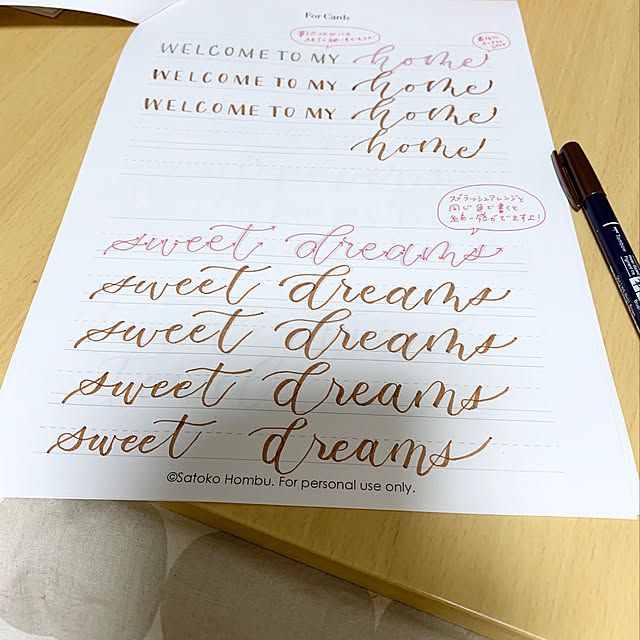 For Cards
WELCOME TO MY home
WELCOME TO MY home
WELCOME TO MY home
home
スプラッシュアレンジと
同じ色で書くと
統一感がでますよ!
sweet dreams
sweet dreams
sweet dreams
sweet dreams
sweet dreams
©Satoko Hombu. For personal use only.